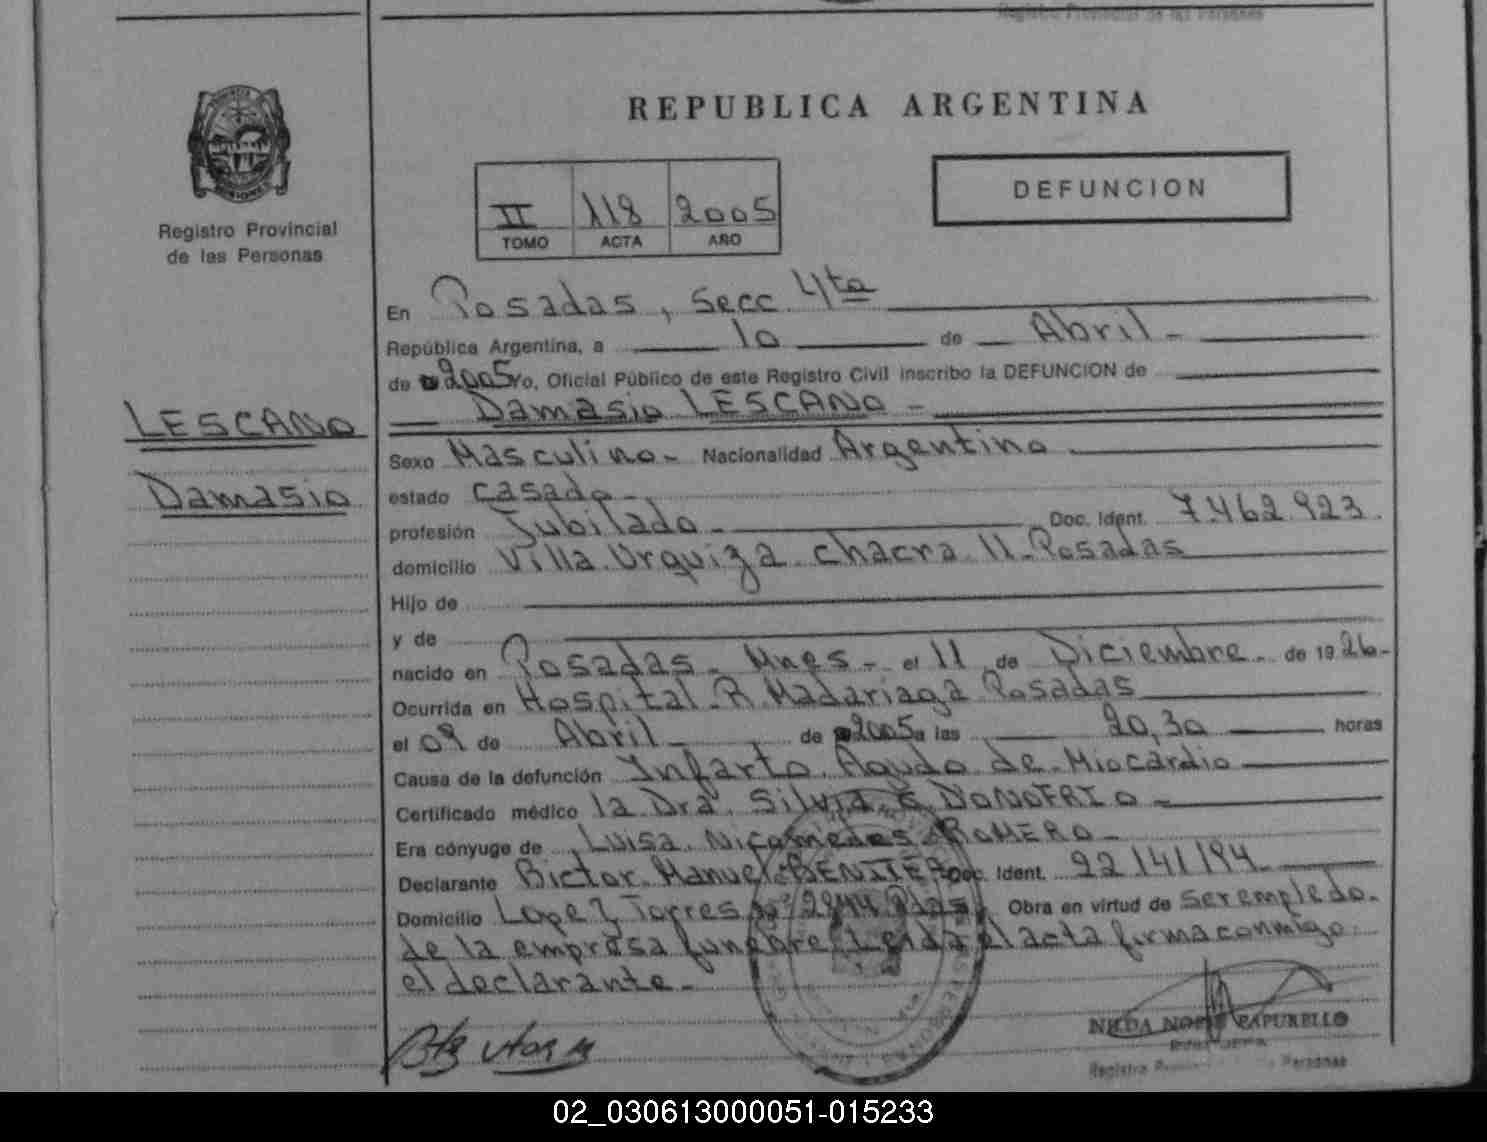 Registro Provincial de las Personas
REPUBLICA ARGENTINA
DEFUNCION
II 118 2005
TOMO ACTA AÑO
Registro Provincial
de las Personas
LESCANO
Damasio
En Posadas, Secc 4ta
República Argentina, a 10 de Abril
de 2005 yo, Oficial Público de este Registro Civil inscribo la DEFUNCION de
Damasio LESCANO
Sexo Masculino Nacionalidad Argentino
estado casado
profesión Jubilado Doc. Ident. 7.462.923
domicilio Villa Urquiza chacra 11 Posadas
Hijo de
y de
nacido en Posadas Mnes el 11 de Diciembre de 1926
Ocurrida en Hospital R. Madariaga Posadas
el 09 de Abril de 2005 a las 20,30 horas
Causa de la defunción Infarto Agudo de Miocardio
Certificado médico la Dra. Silvia DONOFRIO
Era cónyuge de Luisa Nicomedes ROMERO
Declarante Bictor Manuel BENITEZ Doc. Ident. 22141194
Domicilio Lopez Torres Nº 2944 Pdas Obra en virtud de ser empledo
de la empresa funebre Leida el acta firma conmigo
el declarante
Registro Personas
02_030613000051-015233